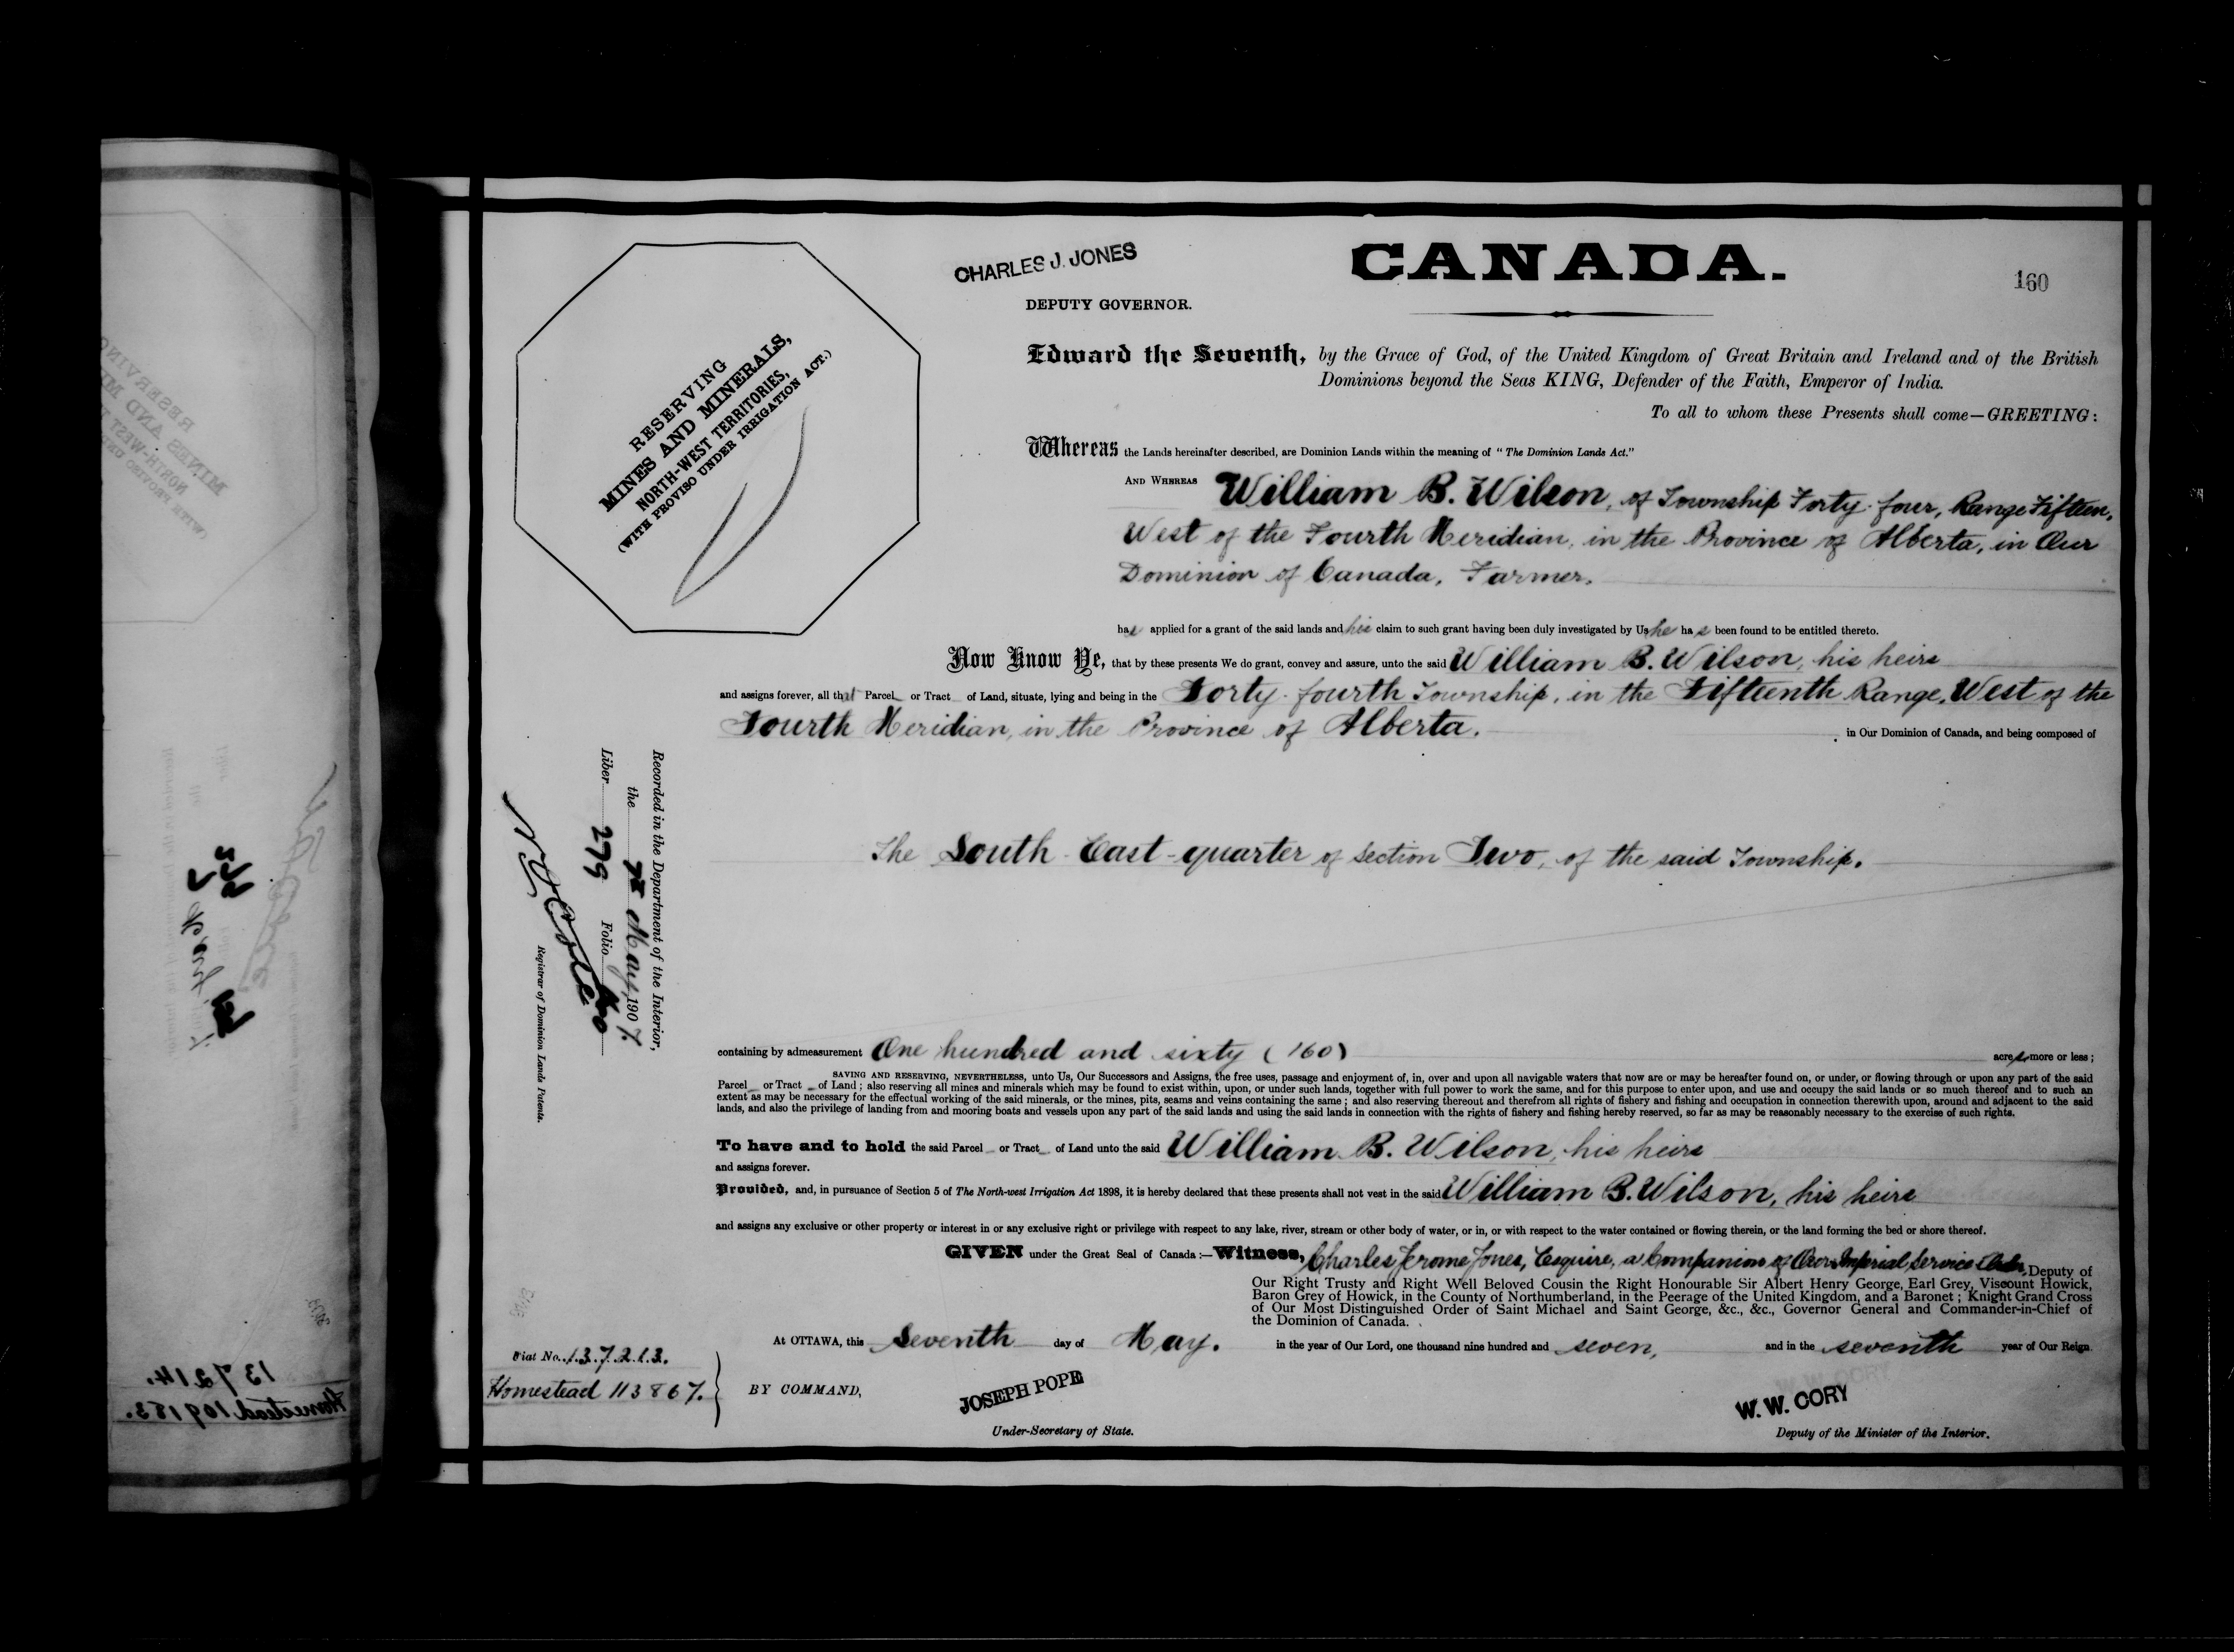 CHARLES J. JONES
CANADA.
160
DEPUTY GOVERNOR.
RESERVING
MINES AND MINERALS,
NORTH-WEST TERRITORIES,
(WITH PROVISO UNDER IRRIGATION ACT.)
Edward the Seventh, by the Grace of God, of the United Kingdom of Great Britain and Ireland and of the British
Dominions beyond the Seas KING, Defender of the Faith, Emperor of India.
To all to whom these Presents shall come—GREETING:
Whereas the Lands hereinafter described, are Dominion Lands within the meaning of "The Dominion Lands Act."
AND WHEREAS William B. Wilson, of Township Forty-four, Range Fifteen,
West of the Fourth Meridian, in the Province of Alberta, in Our
Dominion of Canada, Farmer.
has applied for a grant of the said lands and his claim to such grant having been duly investigated by Us he has been found to be entitled thereto.
Now Know Ye, that by these presents We do grant, convey and assure, unto the said William B. Wilson, his heirs
and assigns forever, all that Parcel or Tract of Land, situate, lying and being in the Forty-fourth Township, in the Fifteenth Range, West of the
Fourth Meridian, in the Province of Alberta. in Our Dominion of Canada, and being composed of
The South East-quarter of Section Two, of the said Township.
Recorded in the Department of the Interior,
the 7th May, 1907.
Liber 279 Folio 160
Registrar of Dominion Lands Patents.
containing by admeasurement One hundred and sixty (160) acres, more or less;
SAVING AND RESERVING, NEVERTHELESS, unto Us, Our Successors and Assigns, the free uses, passage and enjoyment of, in, over and upon all navigable waters that now are or may be hereafter found on, or under, or flowing through or upon any part of the said
Parcel or Tract of Land; also reserving all mines and minerals which may be found to exist within, upon, or under such lands, together with full power to work the same, and for this purpose to enter upon, and use and occupy the said lands or so much thereof and to such an
extent as may be necessary for the effectual working of the said minerals, or the mines, pits, seams and veins containing the same; and also reserving thereout and therefrom all rights of fishery and fishing and occupation in connection therewith upon, around and adjacent to the said
lands, and also the privilege of landing from and mooring boats and vessels upon any part of the said lands and using the said lands in connection with the rights of fishery and fishing hereby reserved, so far as may be reasonably necessary to the exercise of such rights.
To have and to hold the said Parcel or Tract of Land unto the said William B. Wilson, his heirs
and assigns forever.
Provided, and, in pursuance of Section 5 of The North-west Irrigation Act 1898, it is hereby declared that these presents shall not vest in the said William B. Wilson, his heirs
and assigns any exclusive or other property or interest in or any exclusive right or privilege with respect to any lake, river, stream or other body of water, or in, or with respect to the water contained or flowing therein, or the land forming the bed or shore thereof.
GIVEN under the Great Seal of Canada:—Witness, Charles Jerome Jones, Esquire, a Companion of Our Imperial Service Order, Deputy of
Our Right Trusty and Right Well Beloved Cousin the Right Honourable Sir Albert Henry George, Earl Grey, Viscount Howick,
Baron Grey of Howick, in the County of Northumberland, in the Peerage of the United Kingdom, and a Baronet; Knight Grand Cross
of Our Most Distinguished Order of Saint Michael and Saint George, &c., &c., Governor General and Commander-in-Chief of
the Dominion of Canada.
At OTTAWA, this Seventh day of May. in the year of Our Lord, one thousand nine hundred and seven, and in the seventh year of Our Reign.
Fiat No. 137213.
Homestead 113867.
BY COMMAND,
JOSEPH POPE
Under-Secretary of State.
W. W. CORY
Deputy of the Minister of the Interior.
137214.
Homestead 109183.